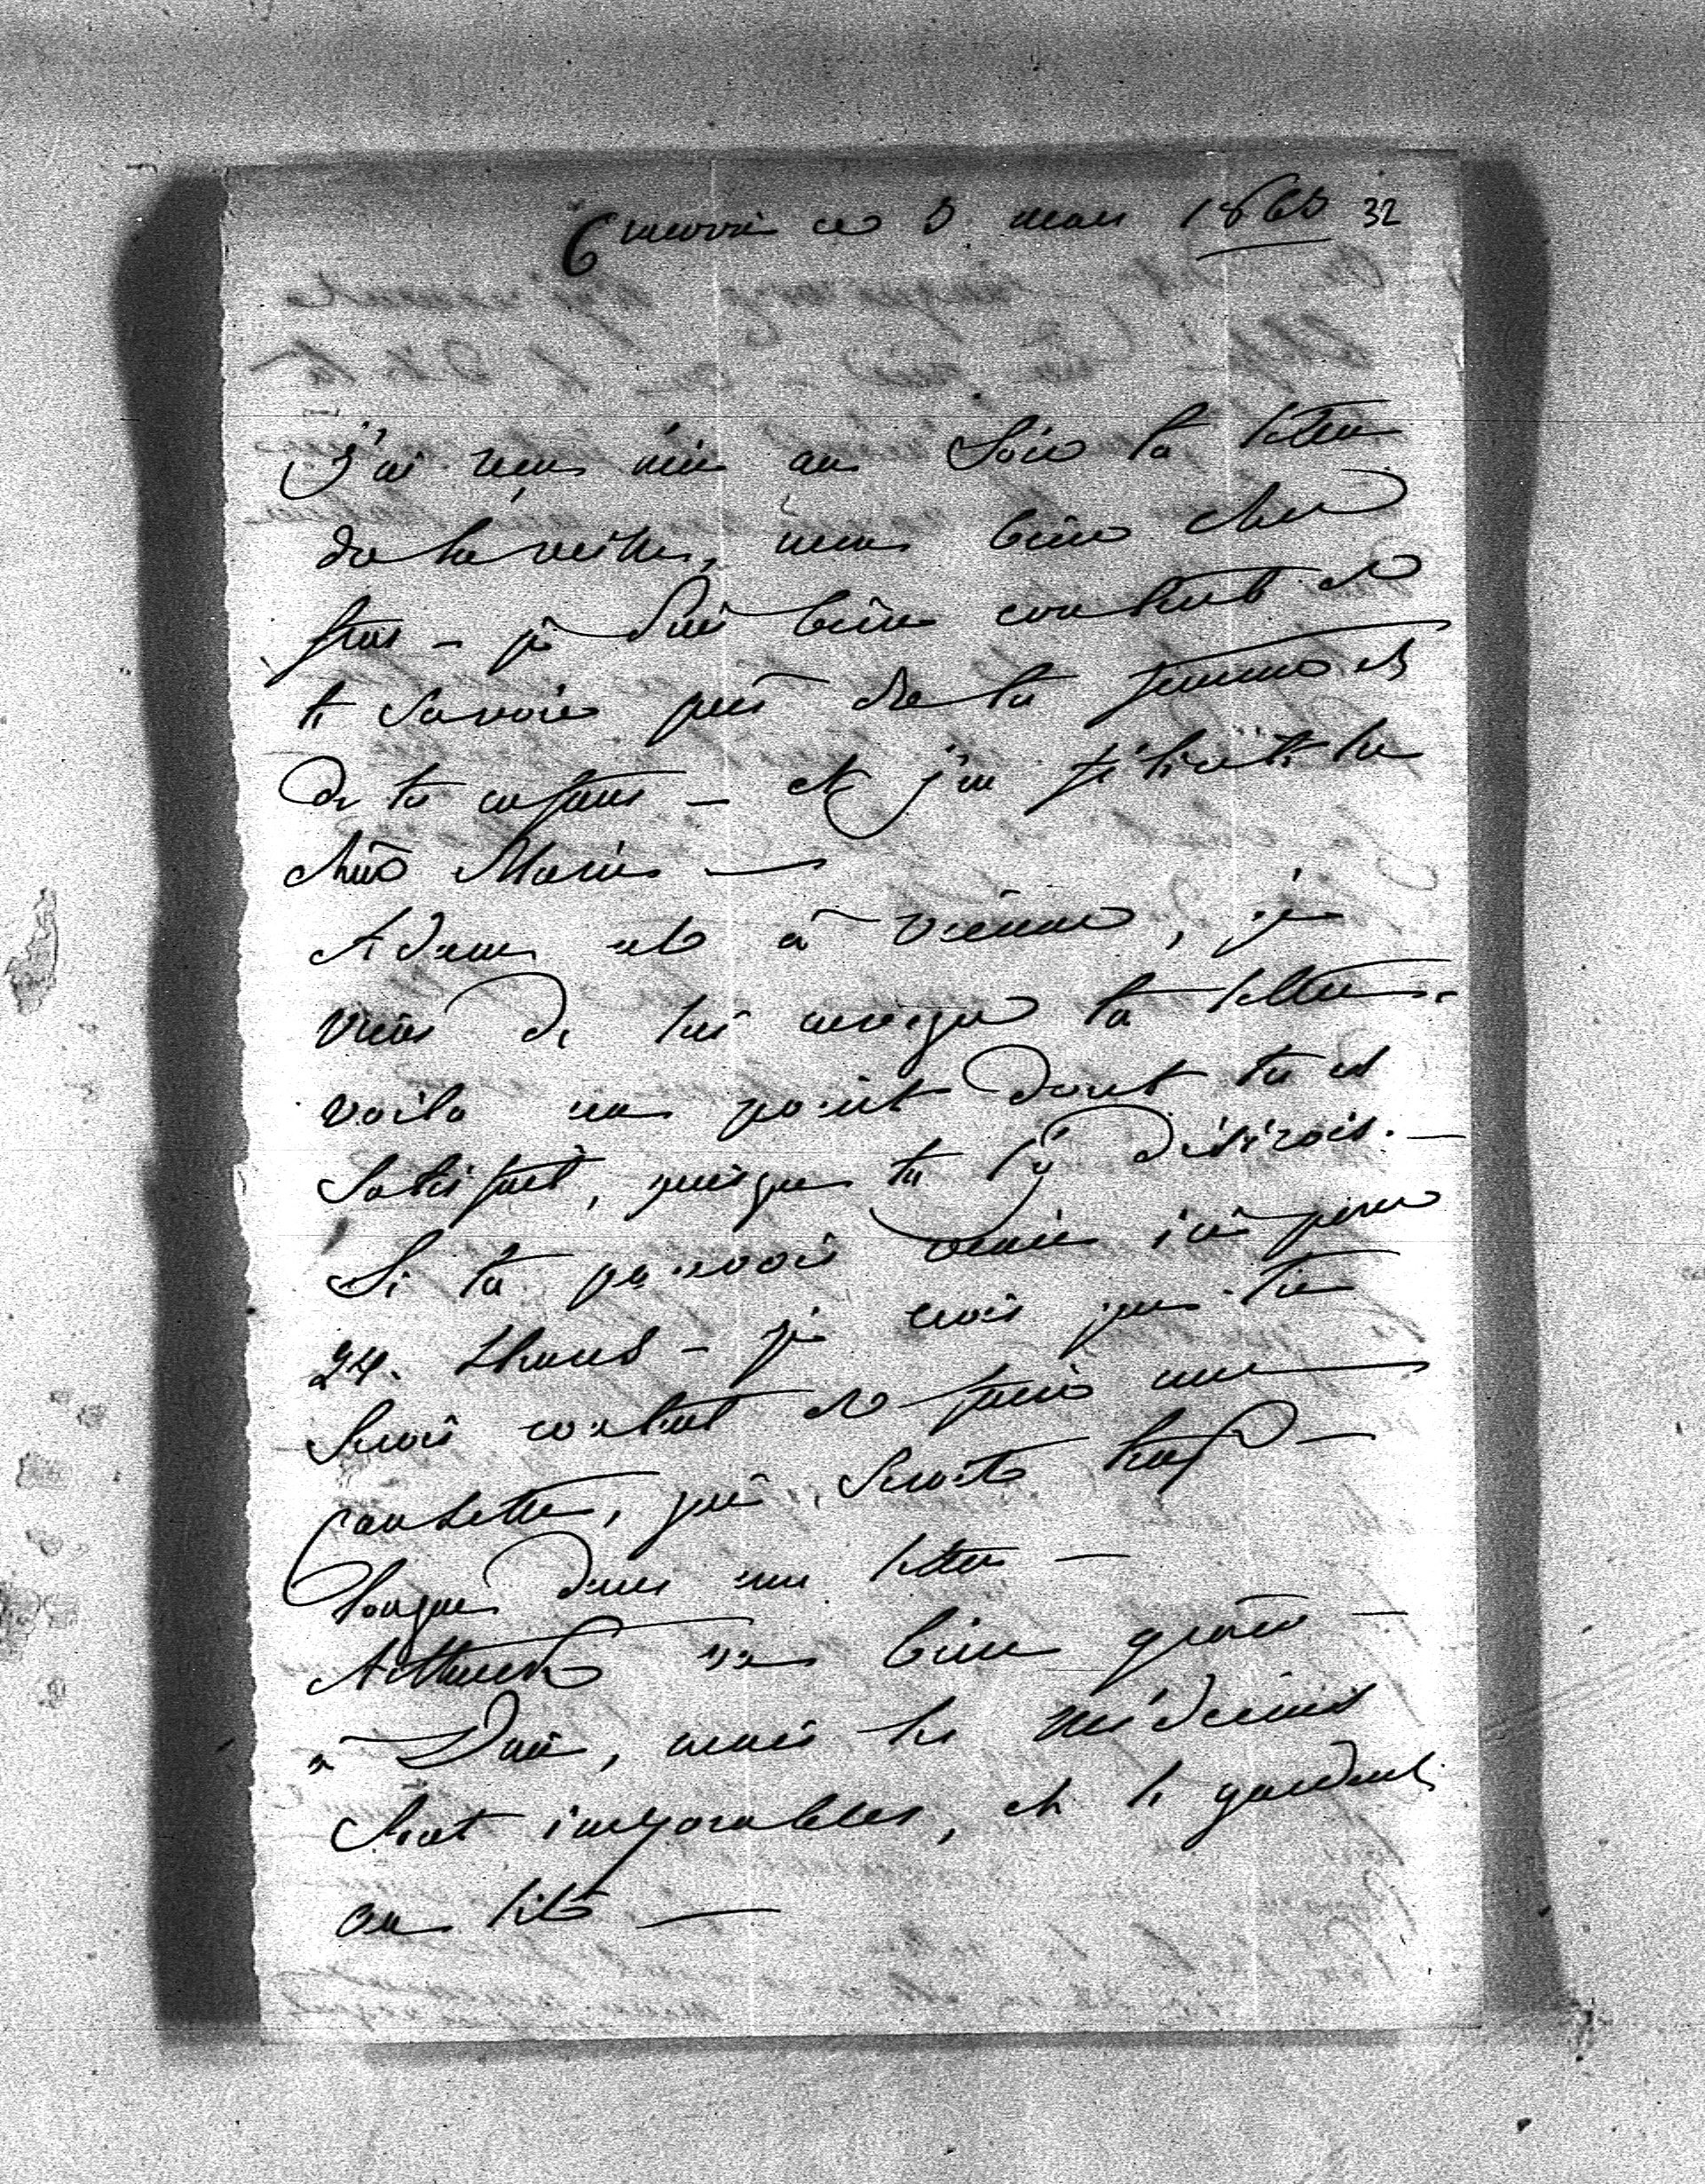 Cracovie ce 3 mars 1863 32
J'ai reçu hier au Soir ta lettre
de la veille, mon bien cher
frère – je Suis bien content de
te Savoir près de ta femme et
de tes enfans – et j'en félicite la
chère Marie —
Adam est à Vienne, je
viens de lui envoyer ta lettre –
voila un point dont tu es
Satisfait, puisque tu l'y désirois. —
Si tu pouvois venir ici pour
24. heures – je crois que tu
Serois content de faire une
Causette, qui Seroit trop –
longue dans une lettre —
Arthur va bien grace –
à Dieu, mais les médecins
Sont inexorables, et le gardent
au lit —